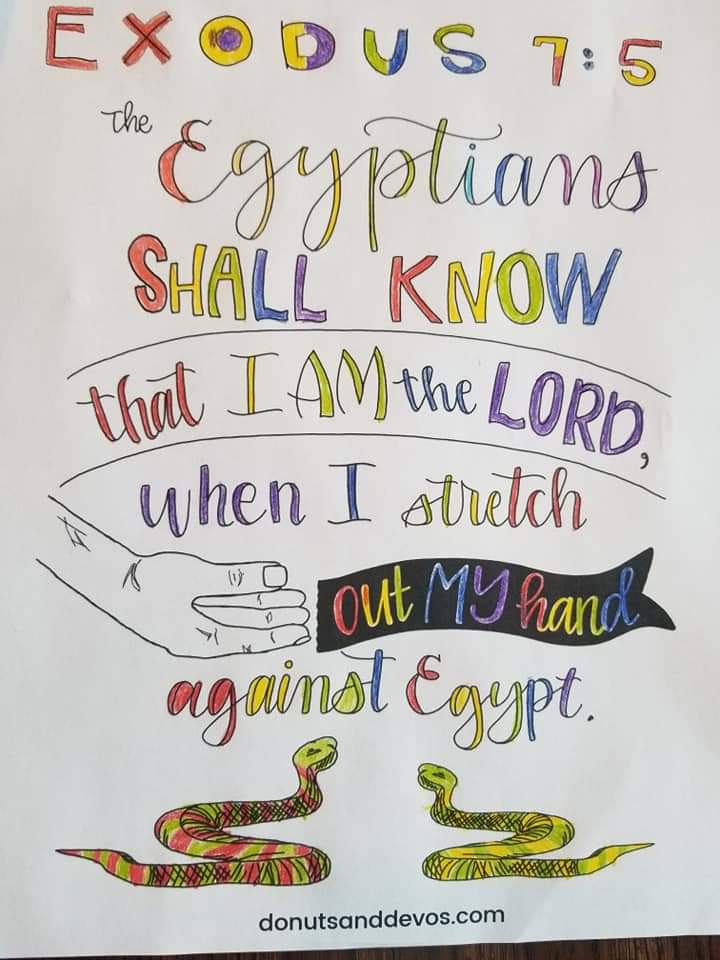 EXODUS 7:5
the Egyptians
SHALL KNOW
that I AM the LORD,
when I stretch
out MY hand
against Egypt.
donutsanddevos.com